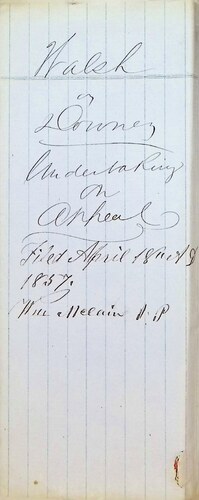 Walsh
vs
Downey
Undertaking
on
Appeal
Filed April 18th A D
1857.
Wm McCain J. P